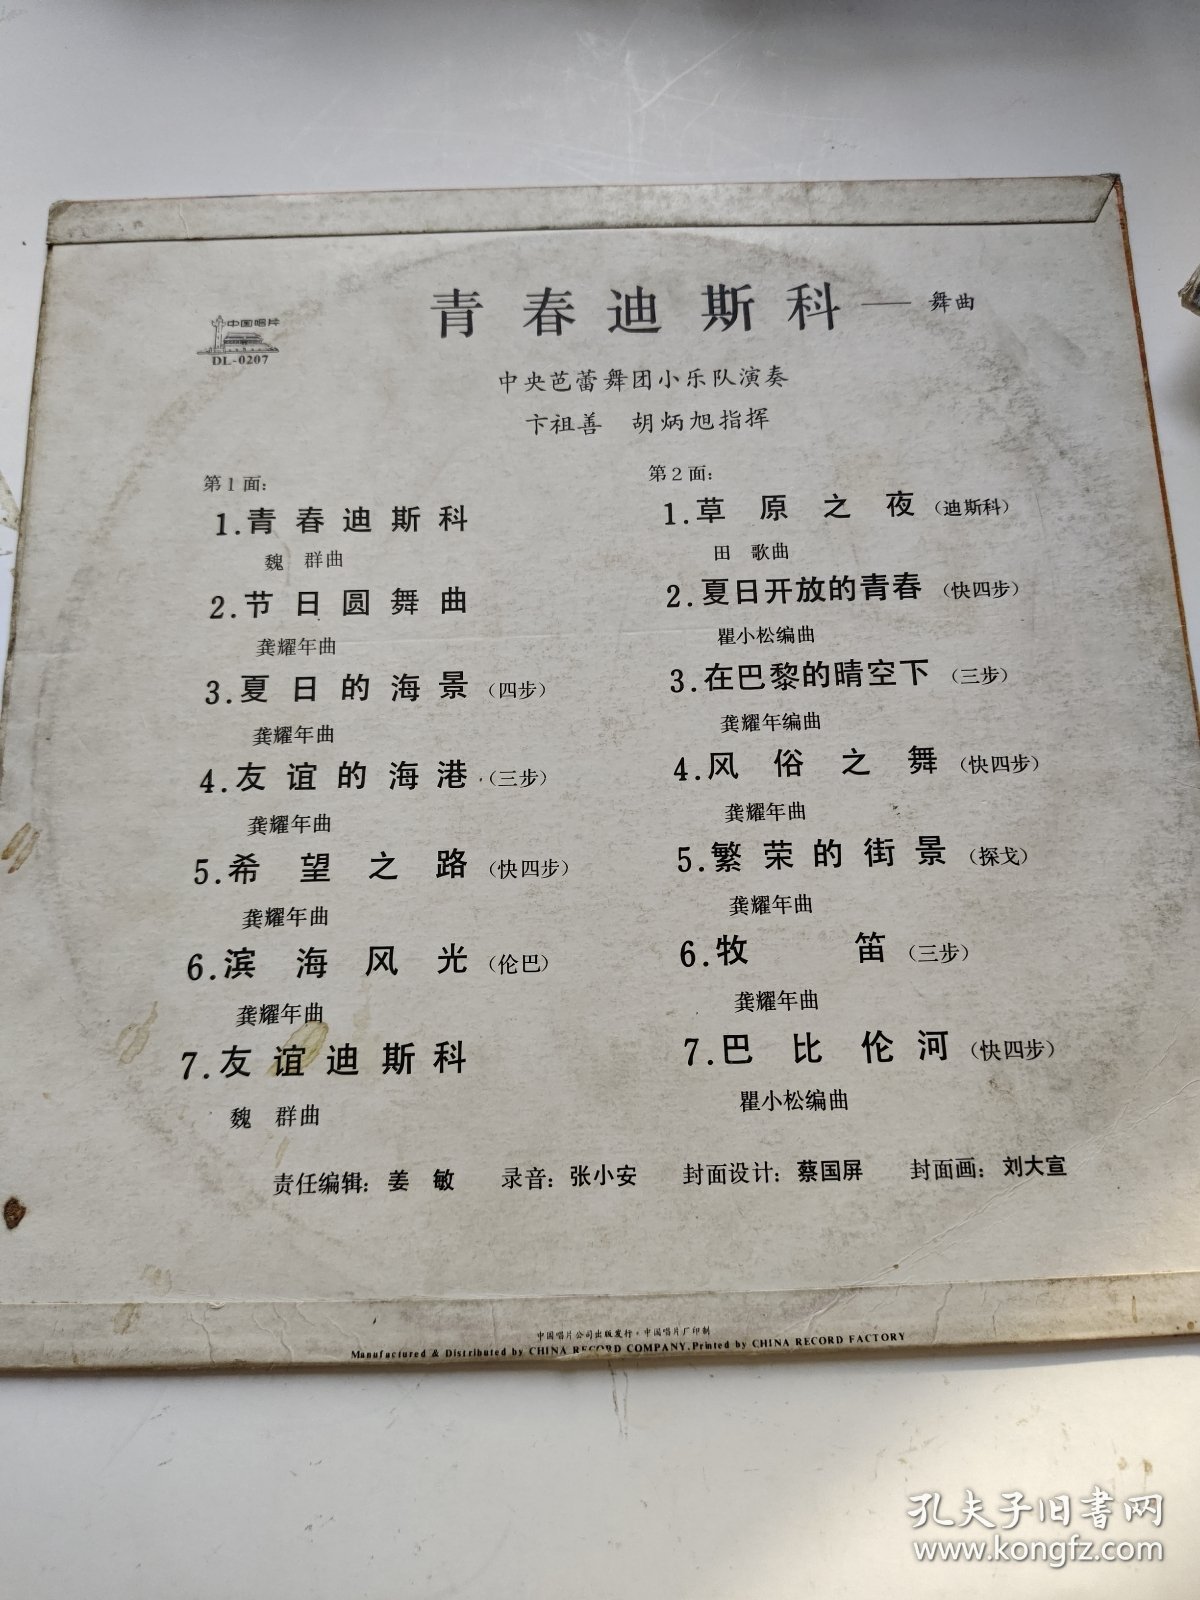 青春迪斯科——舞曲
中国唱片
DL-0207
中央芭蕾舞团小乐队演奏
卞祖善 胡炳旭指挥
第1面:
1.青春迪斯科
魏 群曲
2.节日圆舞曲
龚耀年曲
3.夏日的海景(四步)
龚耀年曲
4.友谊的海港(三步)
龚耀年曲
5.希望之路(快四步)
龚耀年曲
6.滨海风光(伦巴)
龚耀年曲
7.友谊迪斯科
魏 群曲
第2面:
1.草原之夜(迪斯科)
田 歌曲
2.夏日开放的青春(快四步)
瞿小松编曲
3.在巴黎的晴空下(三步)
龚耀年编曲
4.风俗之舞(快四步)
龚耀年曲
5.繁荣的街景(探戈)
龚耀年曲
6.牧笛(三步)
龚耀年曲
7.巴比伦河(快四步)
瞿小松编曲
责任编辑:姜 敏 录音:张小安 封面设计:蔡国屏 封面画:刘大宣
中国唱片公司出版发行·中国唱片厂印制
Manufactured & Distributed by CHINA RECORD COMPANY. Printed by CHINA RECORD FACTORY
孔夫子旧书网
www.kongfz.com